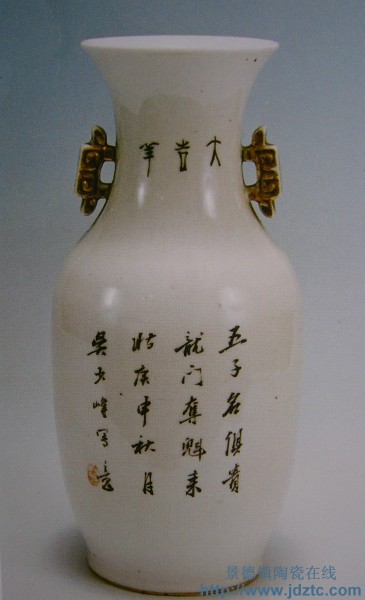 大吉羊
五子名俱貴
龍门奪魁来
时庚申秋月
吴少峰写意
景德镇陶瓷在线
http://www.jdztc.com